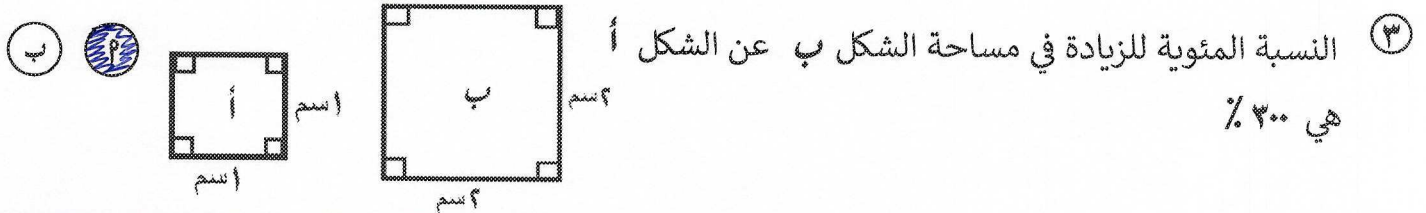 ٣ النسبة المئوية للزيادة في مساحة الشكل ب عن الشكل أ
هي ٣٠٠ ٪
ب
٢ سم
٢ سم
أ
١ سم
١ سم
أ
ب